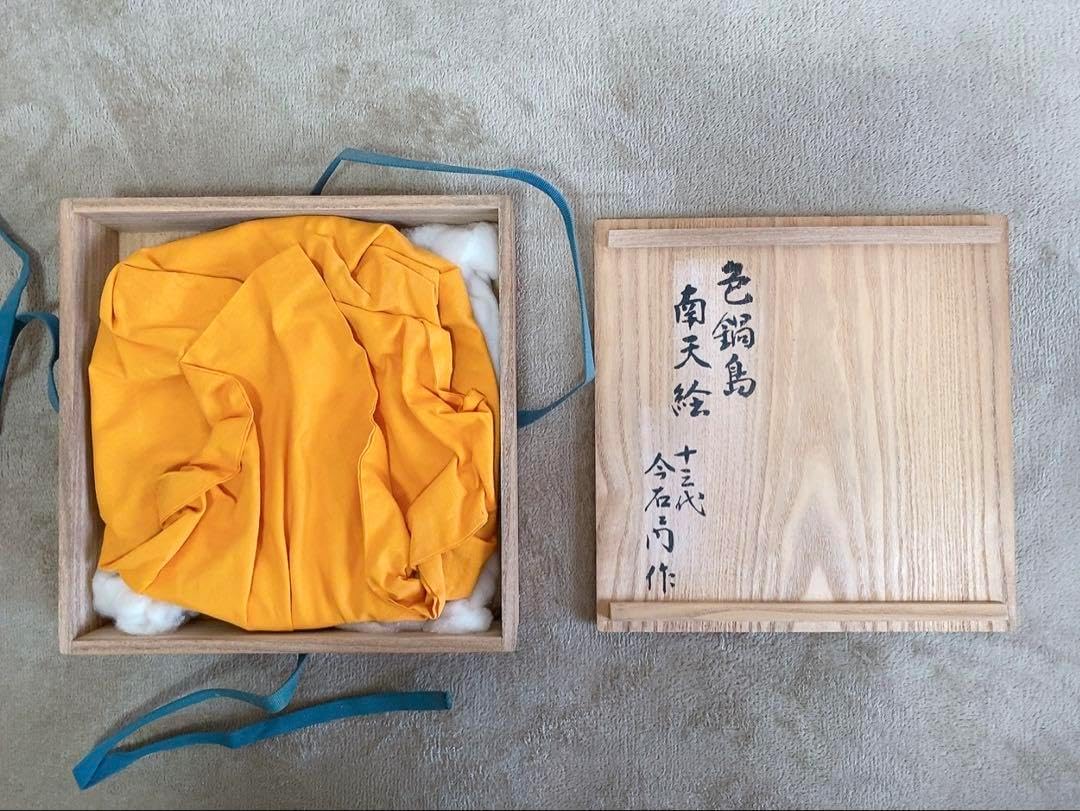 色鍋島
南天絵
十三代
今右エ門作